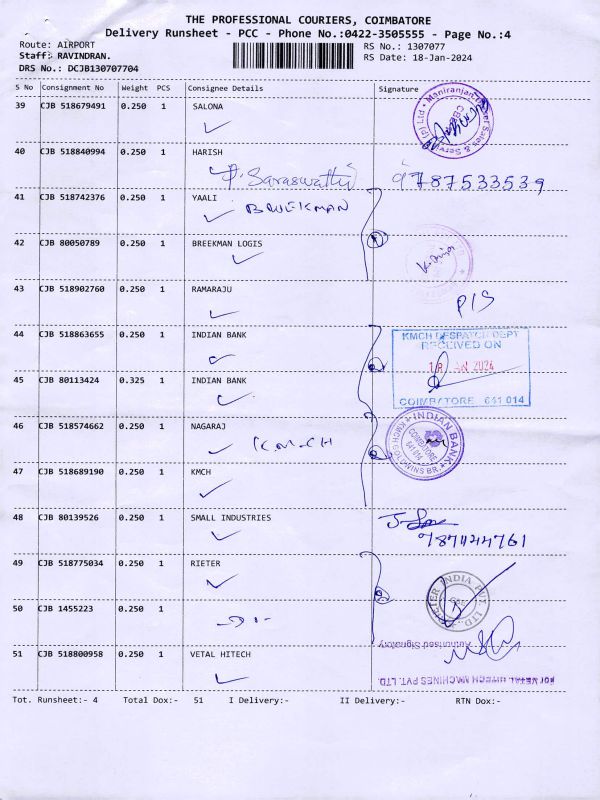 THE PROFESSIONAL COURIERS, COIMBATORE
Delivery Runsheet - PCC - Phone No.:0422-3505555 - Page No.:4
Route: AIRPORT RS No.: 1307077
Staff: RAVINDRAN. RS Date: 18-Jan-2024
DRS No.: DCJB130707704
S No Consignment No Weight PCS Consignee Details Signature
39 CJB 518679491 0.250 1 SALONA
40 CJB 518840994 0.250 1 HARISH
P. Saraswathi 9787533539
41 CJB 518742376 0.250 1 YAALI
BREEKMAN
42 CJB 80050789 0.250 1 BREEKMAN LOGIS
43 CJB 518902760 0.250 1 RAMARAJU
P/S
44 CJB 518863655 0.250 1 INDIAN BANK
KMCH DESPATCH DEPT
RECEIVED ON
18 JAN 2024
COIMBATORE 641 014
45 CJB 80113424 0.325 1 INDIAN BANK
46 CJB 518574662 0.250 1 NAGARAJ
K.M.C.H
INDIAN BANK
COIMBATORE
641 014
47 CJB 518689190 0.250 1 KMCH
48 CJB 80139526 0.250 1 SMALL INDUSTRIES
49 CJB 518775034 0.250 1 RIETER
RIETER INDIA PVT. LTD.
50 CJB 1455223 0.250 1
Authorised Signatory
51 CJB 518800958 0.250 1 VETAL HITECH
For VETAL HITECH MACHINES PVT. LTD.
Tot. Runsheet:- 4 Total Dox:- 51 I Delivery:- II Delivery:- RTN Dox:-